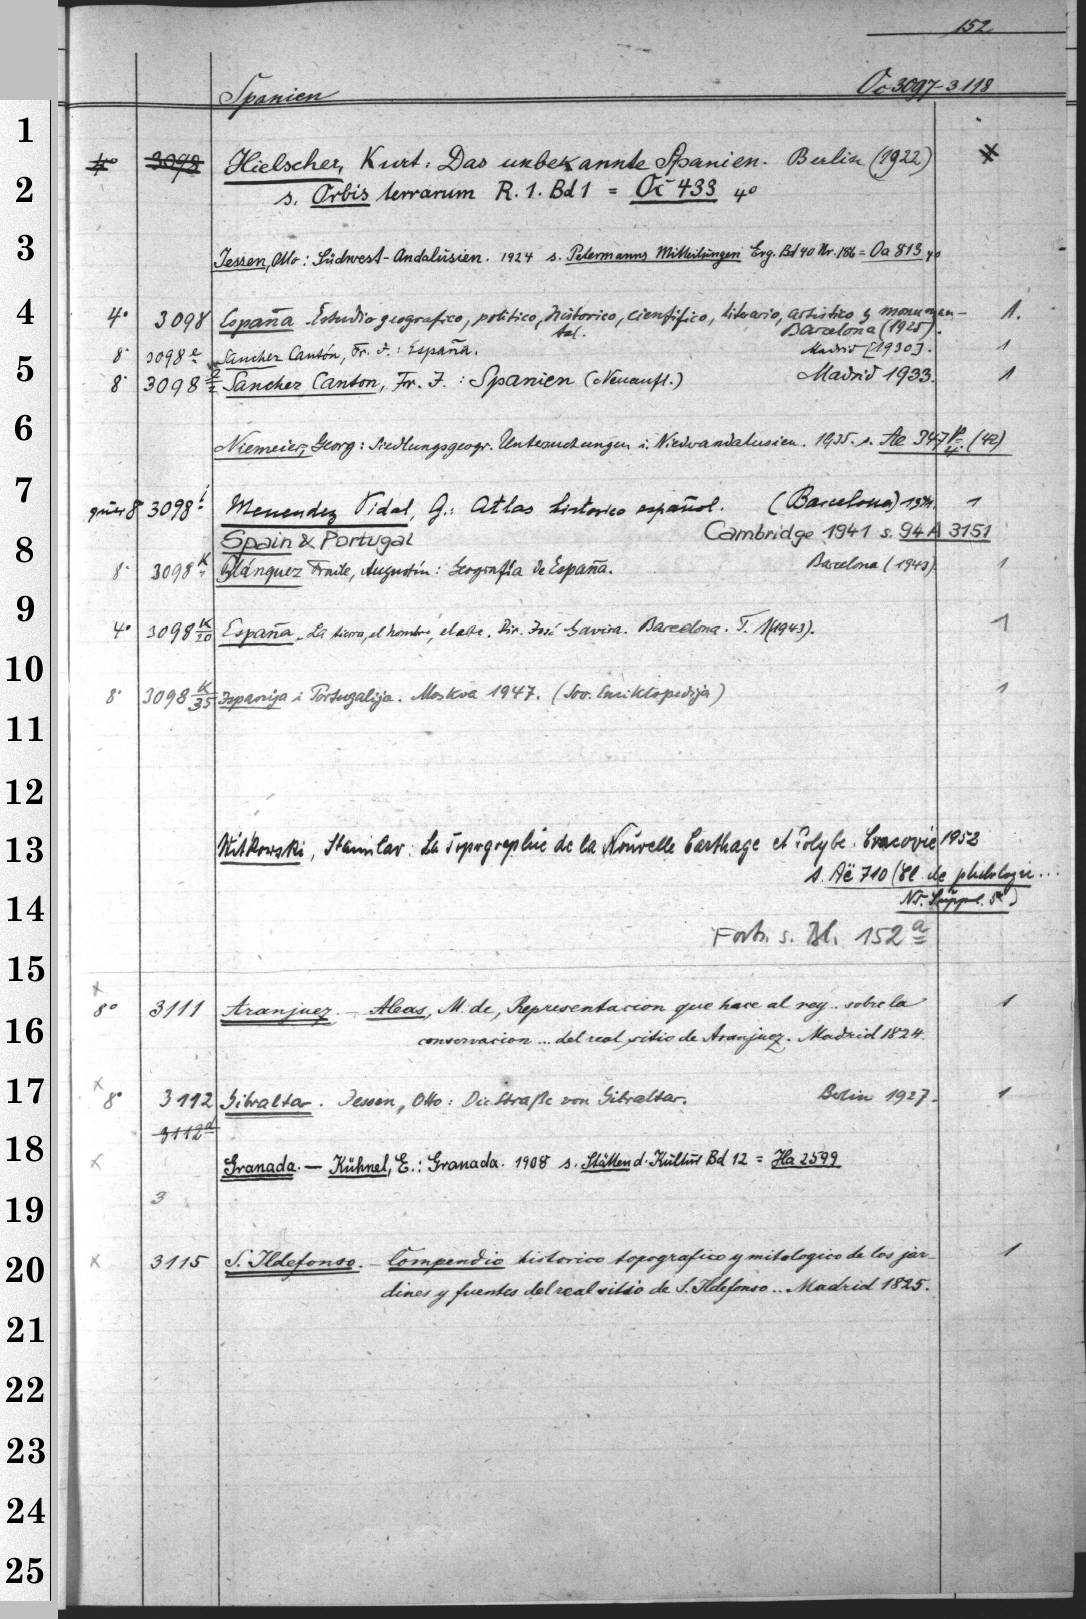 152
Spanien Oc 3097-3118
1
4° 3098 Hielscher, Kurt: Das unbekannte Spanien. Berlin (1922)
2
s. Orbis terrarum R. 1. Bd 1 = Oc 433 4°
3
Jessen, Otto: Südwest-Andalusien. 1924 s. Petermanns Mitteilungen Erg. Bd 40 Nr. 186 = Oa 813 4°
4
4° 3098 España. Estudio geografico, politico, historico, cientifico, literario, artistico y monumen- 1.
tal. Barcelona (1925).
8° 3098 e Sanchez Cantón, Fr. J.: España. Madrid [1930]. 1
5
8° 3098 Sanchez Canton, Fr. J.: Spanien (Neuaufl.) Madrid 1933. 1
6
Niemeier, Georg: Siedlungsgeogr. Untersuchungen i. Niederandalusien. 1935. s. Ae 347 (42)
7
quer 8 3098 i Menendez Vidal, G.: Atlas historico español. (Barcelona) 1941. 1
Spain & Portugal Cambridge 1941 s. 94 A 3151
8
8° 3098 k Blánquez Fraile, Augustín: Geografía de España. Barcelona (1943) 1
9
4° 3098 k/20 España. La tierra, el hombre, el arte. Dir. José Gavira. Barcelona. T. 1 (1943). 1
10
8° 3098 k/35 Ispanija i Portugalija. Moskva 1947. (Sov. Enciklopedija) 1
11
12
13
Witkowski, Stanislav: La topographie de la Nouvelle Carthage et Polybe. Cracovie 1952
s. Aë 710 (Cl. de philologie...
14
Nr. Suppl. 5)
Forts. s. Bl. 152 a
15
x
8° 3111 Aranjuez. — Aleas, M. de, Representacion que hace al rey.. sobre la 1
16
conservacion ... del real sitio de Aranjuez. Madrid 1824.
17
x
8° 3112 Gibraltar. Jessen, Otto: Die Straße von Gibraltar. Berlin 1927. 1
3112 a
18
x Granada. — Kühnel, E.: Granada. 1908 s. Stätten d. Kultur Bd 12 = Ha 2599
3
19
20
x 3115 S. Ildefonso. — Compendio historico topografico y mitologico de los jar- 1
dines y fuentes del real sitio de S. Ildefonso... Madrid 1825.
21
22
23
24
25